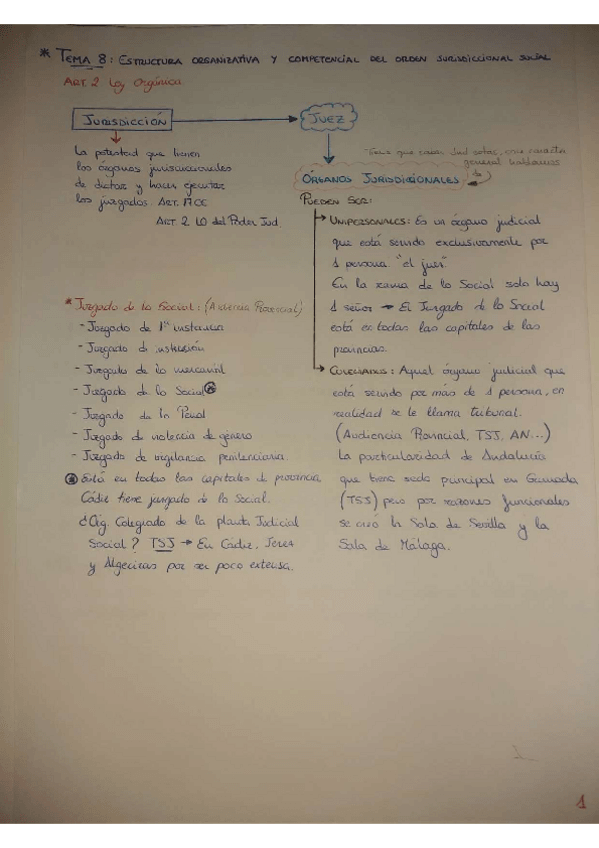 * TEMA 8: ESTRUCTURA ORGANIZATIVA Y COMPETENCIAL DEL ORDEN JURISDICCIONAL SOCIAL
ART. 2 Ley Orgánica
JURISDICCIÓN
JUEZ
La potestad que tienen
los órganos jurisdiccionales
de dictar y hacer ejecutar
los juzgados. ART. 117 CE
ART. 2 LO del Poder Jud.
general hablamos
ÓRGANOS JURISDICCIONALES
PUEDEN SER:
UNIPERSONALES: Es un órgano judicial
que está servido exclusivamente por
1 persona "el juez".
En la rama de lo Social solo hay
1 señor → El Juzgado de lo Social
está en todas las capitales de las
provincias.
COLEGIADOS: Aquel órgano judicial que
está servido por más de 1 persona, en
realidad se le llama tribunal.
(Audiencia Provincial, TSJ, AN...)
La particularidad de Andalucía
que tiene sede principal en Granada
(TSJ) pero por razones funcionales
se creó la Sala de Sevilla y la
Sala de Málaga.
* Juzgado de lo Social: (Audiencia Provincial)
- Juzgado de 1ª instancia
- Juzgado de instrucción
- Juzgado de lo mercantil
- Juzgado de lo Social
- Juzgado de lo Penal
- Juzgado de violencia de género
- Juzgado de vigilancia penitenciaria.
Está en todas las capitales de provincia
Cádiz tiene juzgado de lo Social.
¿Org. Colegiado de la planta Judicial
Social? TSJ → En Cádiz, Jerez
y Algeciras por ser poco extensa.
1